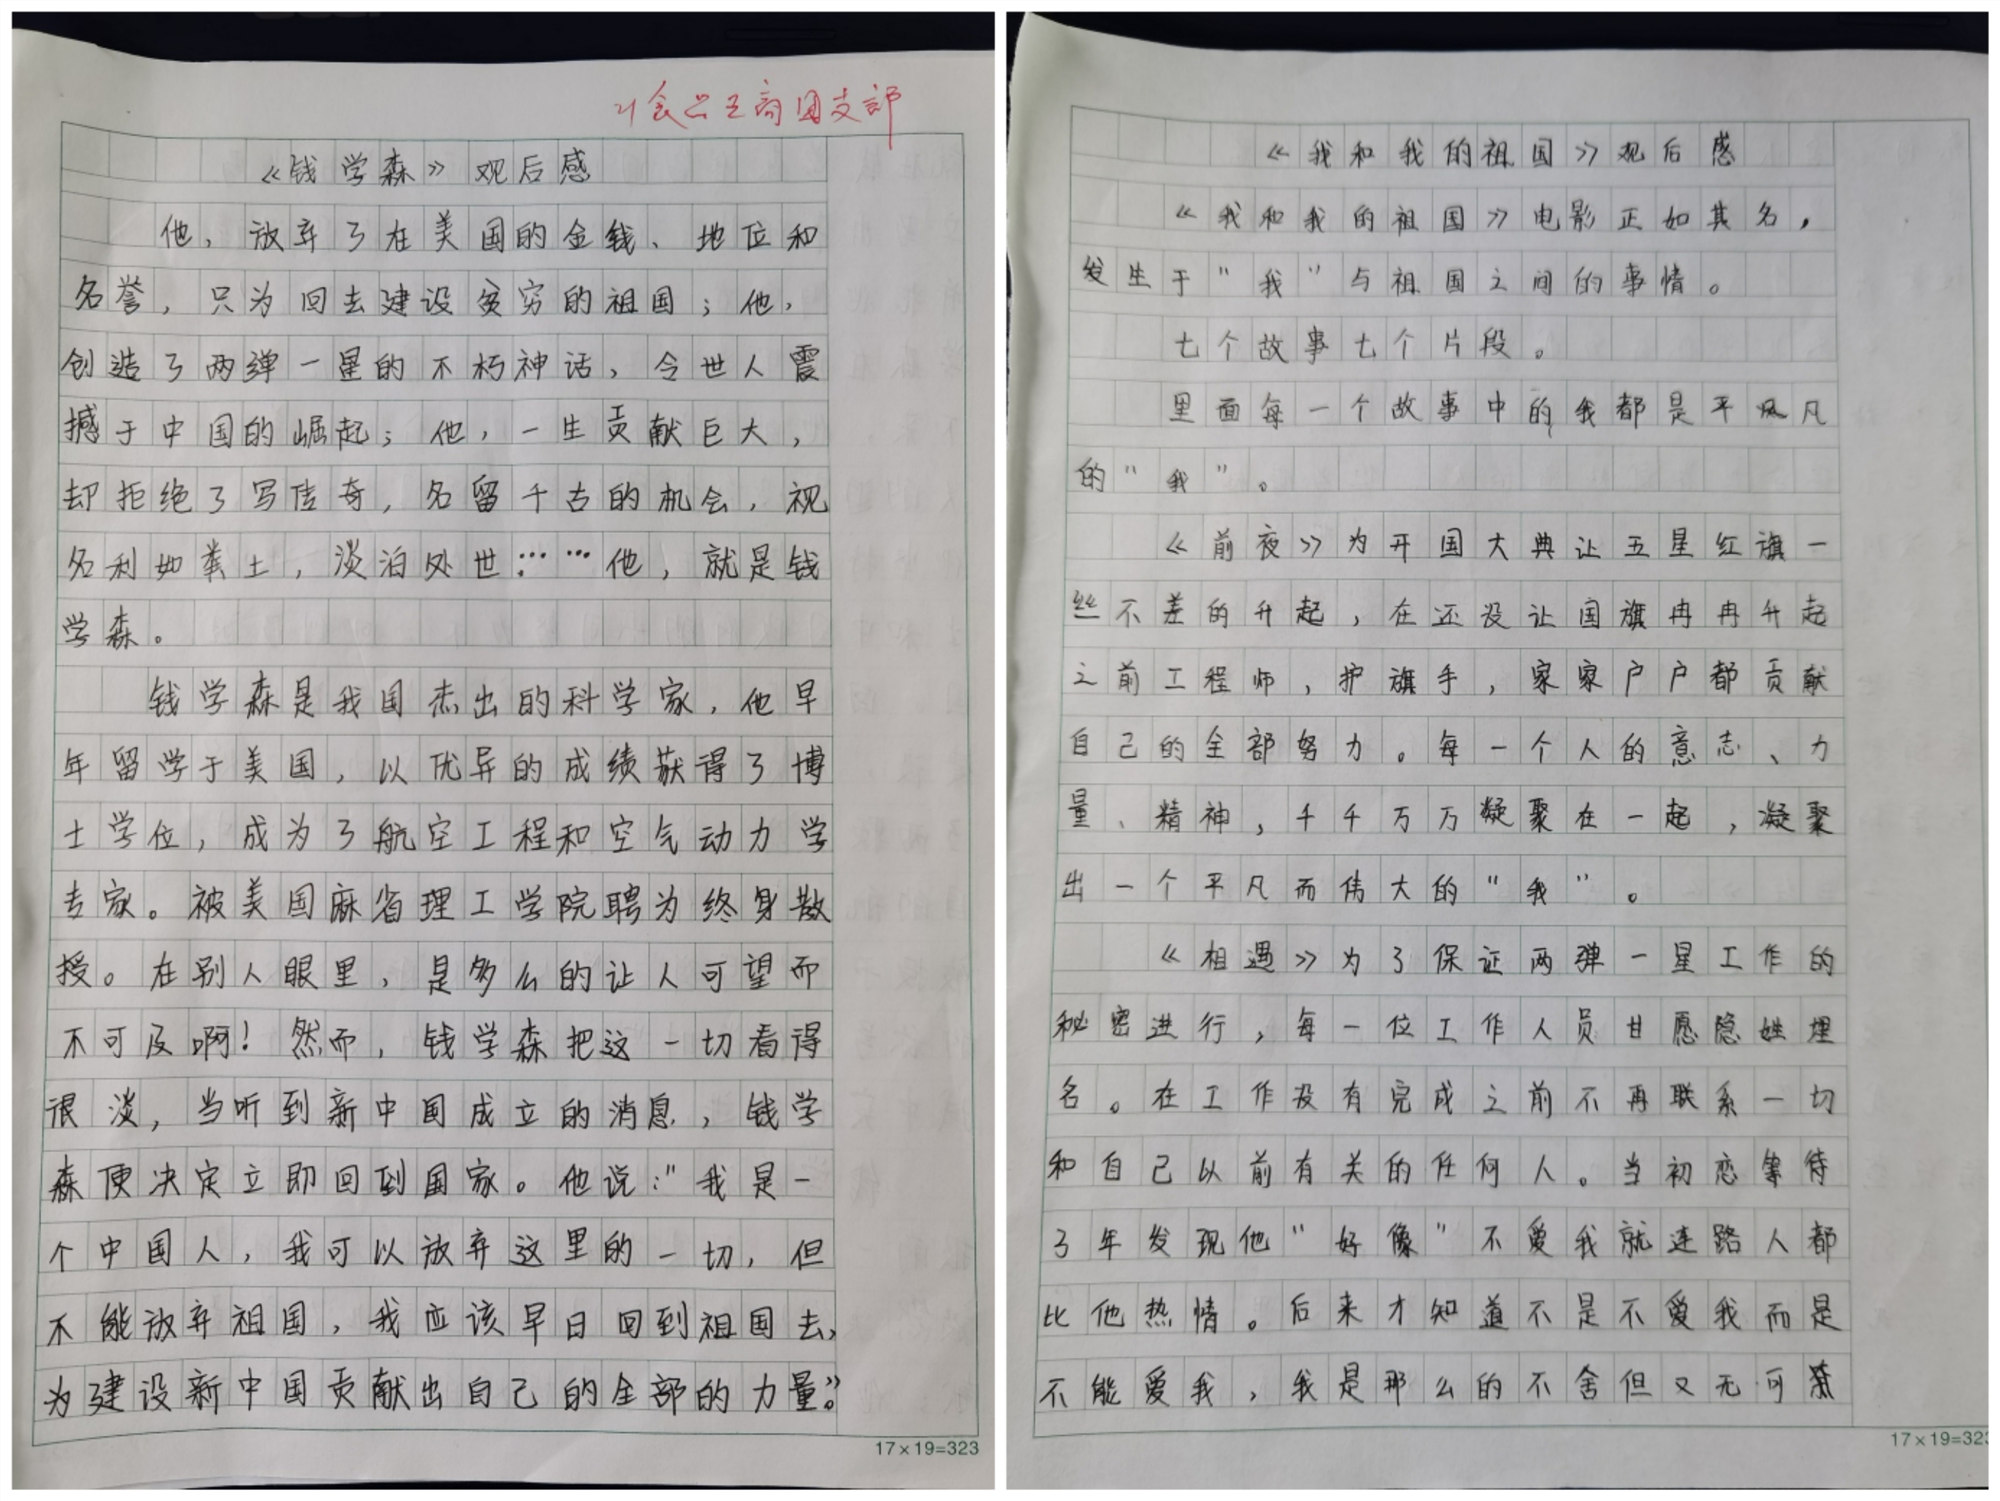 会公工商团支部
《钱学森》观后感
他，放弃了在美国的金钱、地位和
名誉，只为回去建设贫穷的祖国；他，
创造了两弹一星的不朽神话，令世人震
撼于中国的崛起；他，一生贡献巨大，
却拒绝了写传奇，名留千古的机会，视
名利如粪土，淡泊处世……他，就是钱
学森。
钱学森是我国杰出的科学家，他早
年留学于美国，以优异的成绩获得了博
士学位，成为了航空工程和空气动力学
专家。被美国麻省理工学院聘为终身教
授。在别人眼里，是多么的让人可望而
不可及啊！然而，钱学森把这一切看得
很淡，当听到新中国成立的消息，钱学
森便决定立即回到国家。他说："我是一
个中国人，我可以放弃这里的一切，但
不能放弃祖国，我应该早日回到祖国去，
为建设新中国贡献出自己的全部的力量。"
17×19=323
《我和我的祖国》观后感
《我和我的祖国》电影正如其名，
发生于"我"与祖国之间的事情。
七个故事七个片段。
里面每一个故事中的我都是平凡凡
的"我"。
《前夜》为开国大典让五星红旗一
丝不差的升起，在还没让国旗冉冉升起
之前工程师，护旗手，家家户户都贡献
自己的全部努力。每一个人的意志、力
量、精神，千千万万凝聚在一起，凝聚
出一个平凡而伟大的"我"。
《相遇》为了保证两弹一星工作的
秘密进行，每一位工作人员甘愿隐姓埋
名。在工作没有完成之前不再联系一切
和自己以前有关的任何人。当初恋等待
了年发现他"好像"不爱我就连路人都
比他热情。后来才知道不是不爱我而是
不能爱我，我是那么的不舍但又无可奈
17×19=323